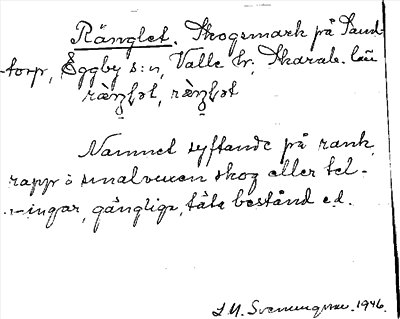 Ränglet. Skogsmark på Sand-
torp, Eggby s:n, Valle hr, Skarab. län
Namnet syftande på rank,
rapp o smalvuxen skog eller tel-
ningar, gängliga, täta bestånd e.d.
S. M. 1946.